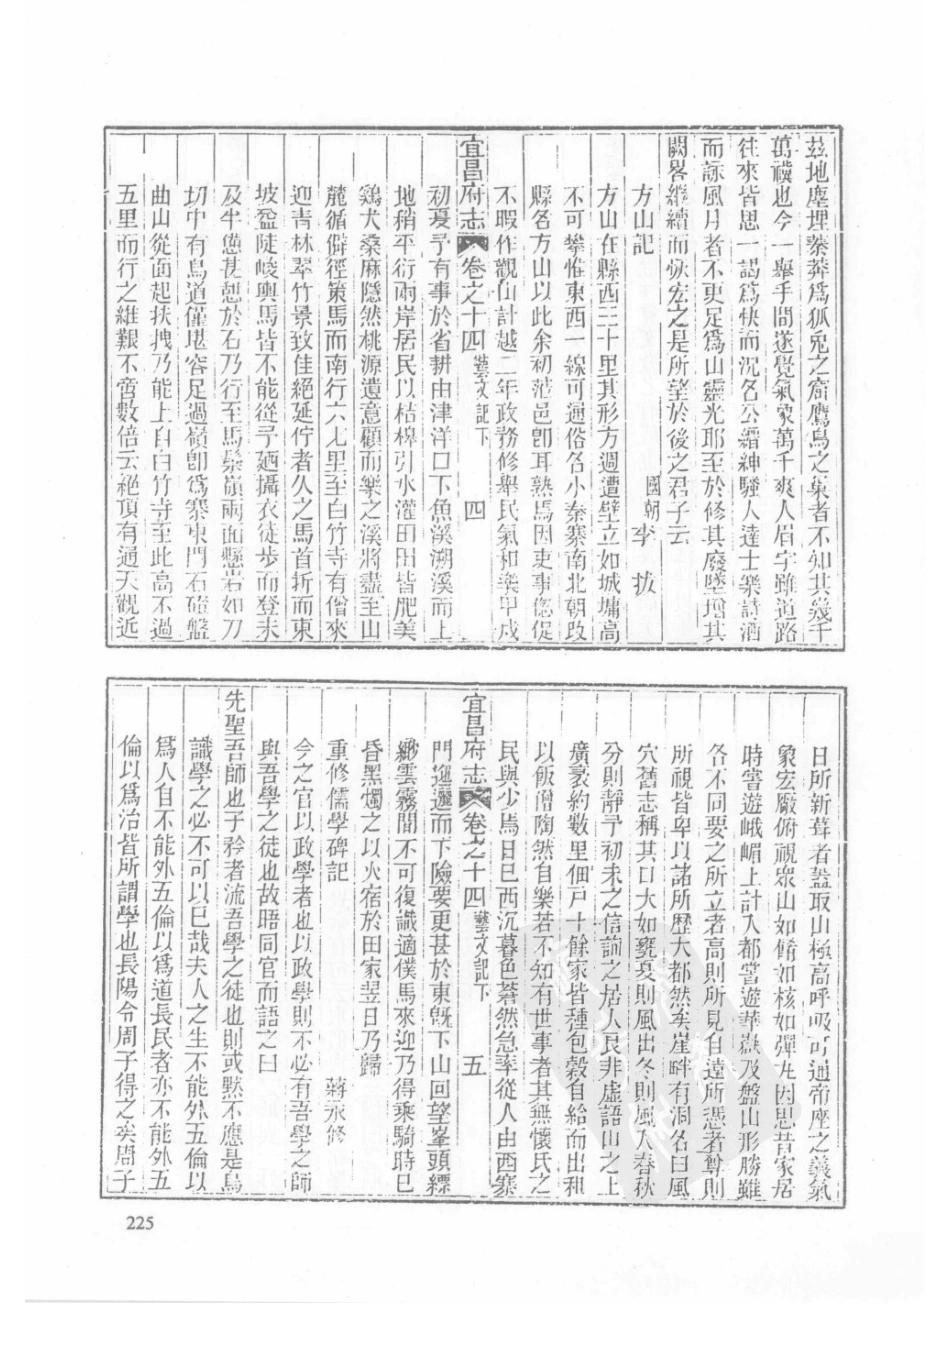 茲地塵埋蓁莽爲狐兎之窟鷹鳥之巢者不知其幾千
萬禩也今一舉手間遂覺氣象萬千爽人眉宇雖道路
往來皆思一謁爲快而況名公縉紳騷人達士樂詩酒
而詠風月者不更足爲山靈光耶至於修其廢墜增其
闕畧繼續而恢宏之是所望於後之君子云
方山記 國朝李拔
方山在縣西三十里其形方週遭壁立如城墉高
不可攀惟東西一線可通俗名小秦寨南北朝改
縣名方山以此余初蒞邑卽耳熟焉因吏事傯促
不暇作觀山計越二年政務修舉民氣和樂甲戌
宜昌府志 卷之十四 藝文記下 四
初夏予有事於省耕由津洋口下魚溪溯溪而上
地稍平衍兩岸居民以枯槔引水灌田田皆肥美
鷄犬桑麻隱然桃源遺意顧而樂之溪將盡至山
麓循僻徑策馬而南行六七里至白竹寺有僧來
迎靑林翠竹景致佳絕延佇者久之馬首折而東
坡盆陡峻輿馬皆不能從予廼攝衣徒步而登未
及半憊甚憩於石乃行至馬鬃嶺兩面懸岩如刀
切中有鳥道僅堪容足過嶺卽爲寨東門石磴盤
曲山從面起扶拽乃能上自白竹寺至此高不過
五里而行之維艱不啻數倍云絕頂有通天觀近
日所新葺者蓋取山極高呼吸可通帝座之義氣
象宏厰俯視眾山如脩如核如彈丸因思昔家居
時嘗遊峨嵋上計入都嘗遊華嶽及盤山形勝雖
各不同要之所立者高則所見自遠所憑者尊則
所視皆卑以諸所歷大都然矣崖畔有洞名曰風
穴舊志稱其口大如甕夏則風出冬則風入春秋
分則靜予初未之信詢之居人良非虛語山之上
廣袤約數里佃戸十餘家皆種包穀自給而出租
以飯僧陶然自樂若不知有世事者其無懷氏之
民與少焉日已西沉暮色蒼然急率從人由西寨
宜昌府志 卷之十四 藝文記下 五
門迤邐而下險要更甚於東旣下山回望峯頭縹
緲雲霧間不可復識適僕馬來迎乃得乘騎時已
昏黑燭之以火宿於田家翌日乃歸
重修儒學碑記 蔣永修
今之官以政學者也以政學則不必有吾學之師
與吾學之徒也故晤同官而語之曰
先聖吾師也子衿者流吾學之徒也則或黙不應是烏
識學之必不可以已哉夫人之生不能外五倫以
爲人自不能外五倫以爲道長民者亦不能外五
倫以爲治皆所謂學也長陽令周子得之矣周子
225